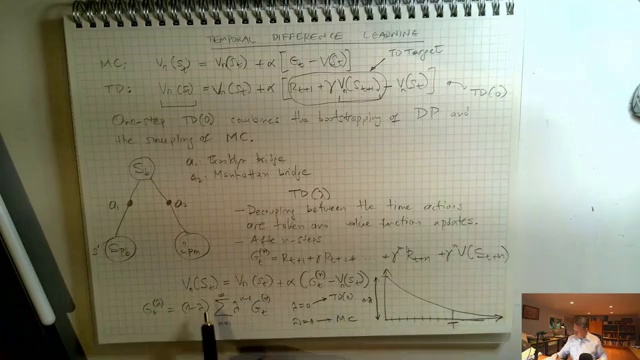 TEMPORAL DIFFERENCE LEARNING
MC: Vπ(St) = Vπ(St) + α [Gt − V(St)]
TD Target
TD: Vπ(St) = Vπ(St) + α [Rt+1 + γ Vπ(St+1) − Vπ(St)] TD(0)
One-step TD(0) combines the bootstrapping of DP and
the sampling of MC.
a1: Brooklyn bridge
a2: Manhattan bridge
Sb
a1 a2
TD(λ)
- Decoupling between the time actions
are taken and value function updates.
- After n-steps
s'
Gt(n) = Rt+1 + γ Rt+2 ... + γ Rt+n + γn V(St+n)
Vπ(St) = Vπ(St) + α (Gt(λ) − Vπ(St))
Gt(λ) = (1−λ) ∑ λn−1 Gt(n)
λ=0 → TD(0)
λ=1 → MC
T